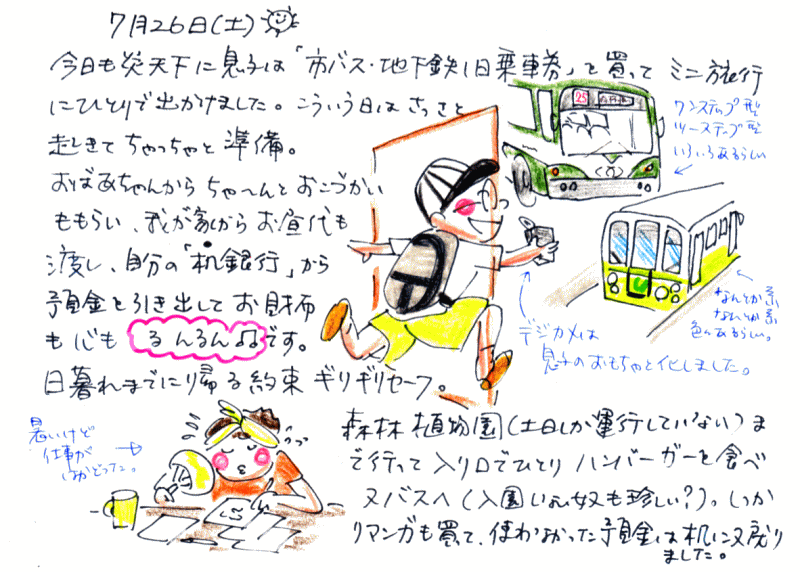 7月26日(土)
今日も炎天下に息子は「市バス・地下鉄1日乗車券」を買って ミニ旅行
にひとりで出かけました。こういう日はさっさと
起きて ちゃっちゃと 準備。
おばあちゃんから ちゃ〜んと おこづかい
ももらい、我が家から お昼代も
渡し、自分の「机銀行」から
預金を引き出して お財布
も心も るんるん♫です。
日暮れまでに帰る約束 ギリギリセーフ。
25
ワンステップ型
ツーステップ型
いろいろあるらしい
なんとか系
なんとか系
色々あるらしい。
デジカメは
息子のおもちゃと化しました。
暑いけど
仕事が
はかどった。
森林植物園(土日しか運行していない)ま
で行って 入り口でひとり ハンバーガーを食べ
又バスへ(入園しない奴も珍しい?)。しっか
りマンガも買って、使わなかった預金は机に又戻り
ました。